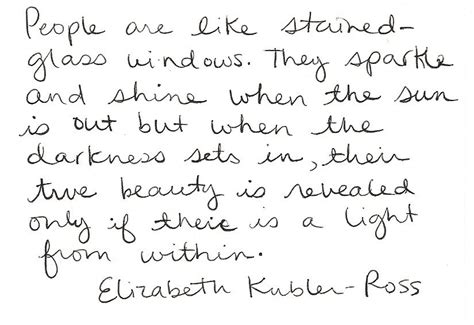 People are like stained-
glass windows. They sparkle
and shine when the sun
is out but when the
darkness sets in, their
true beauty is revealed
only if there is a light
from within.
Elizabeth Kubler-Ross